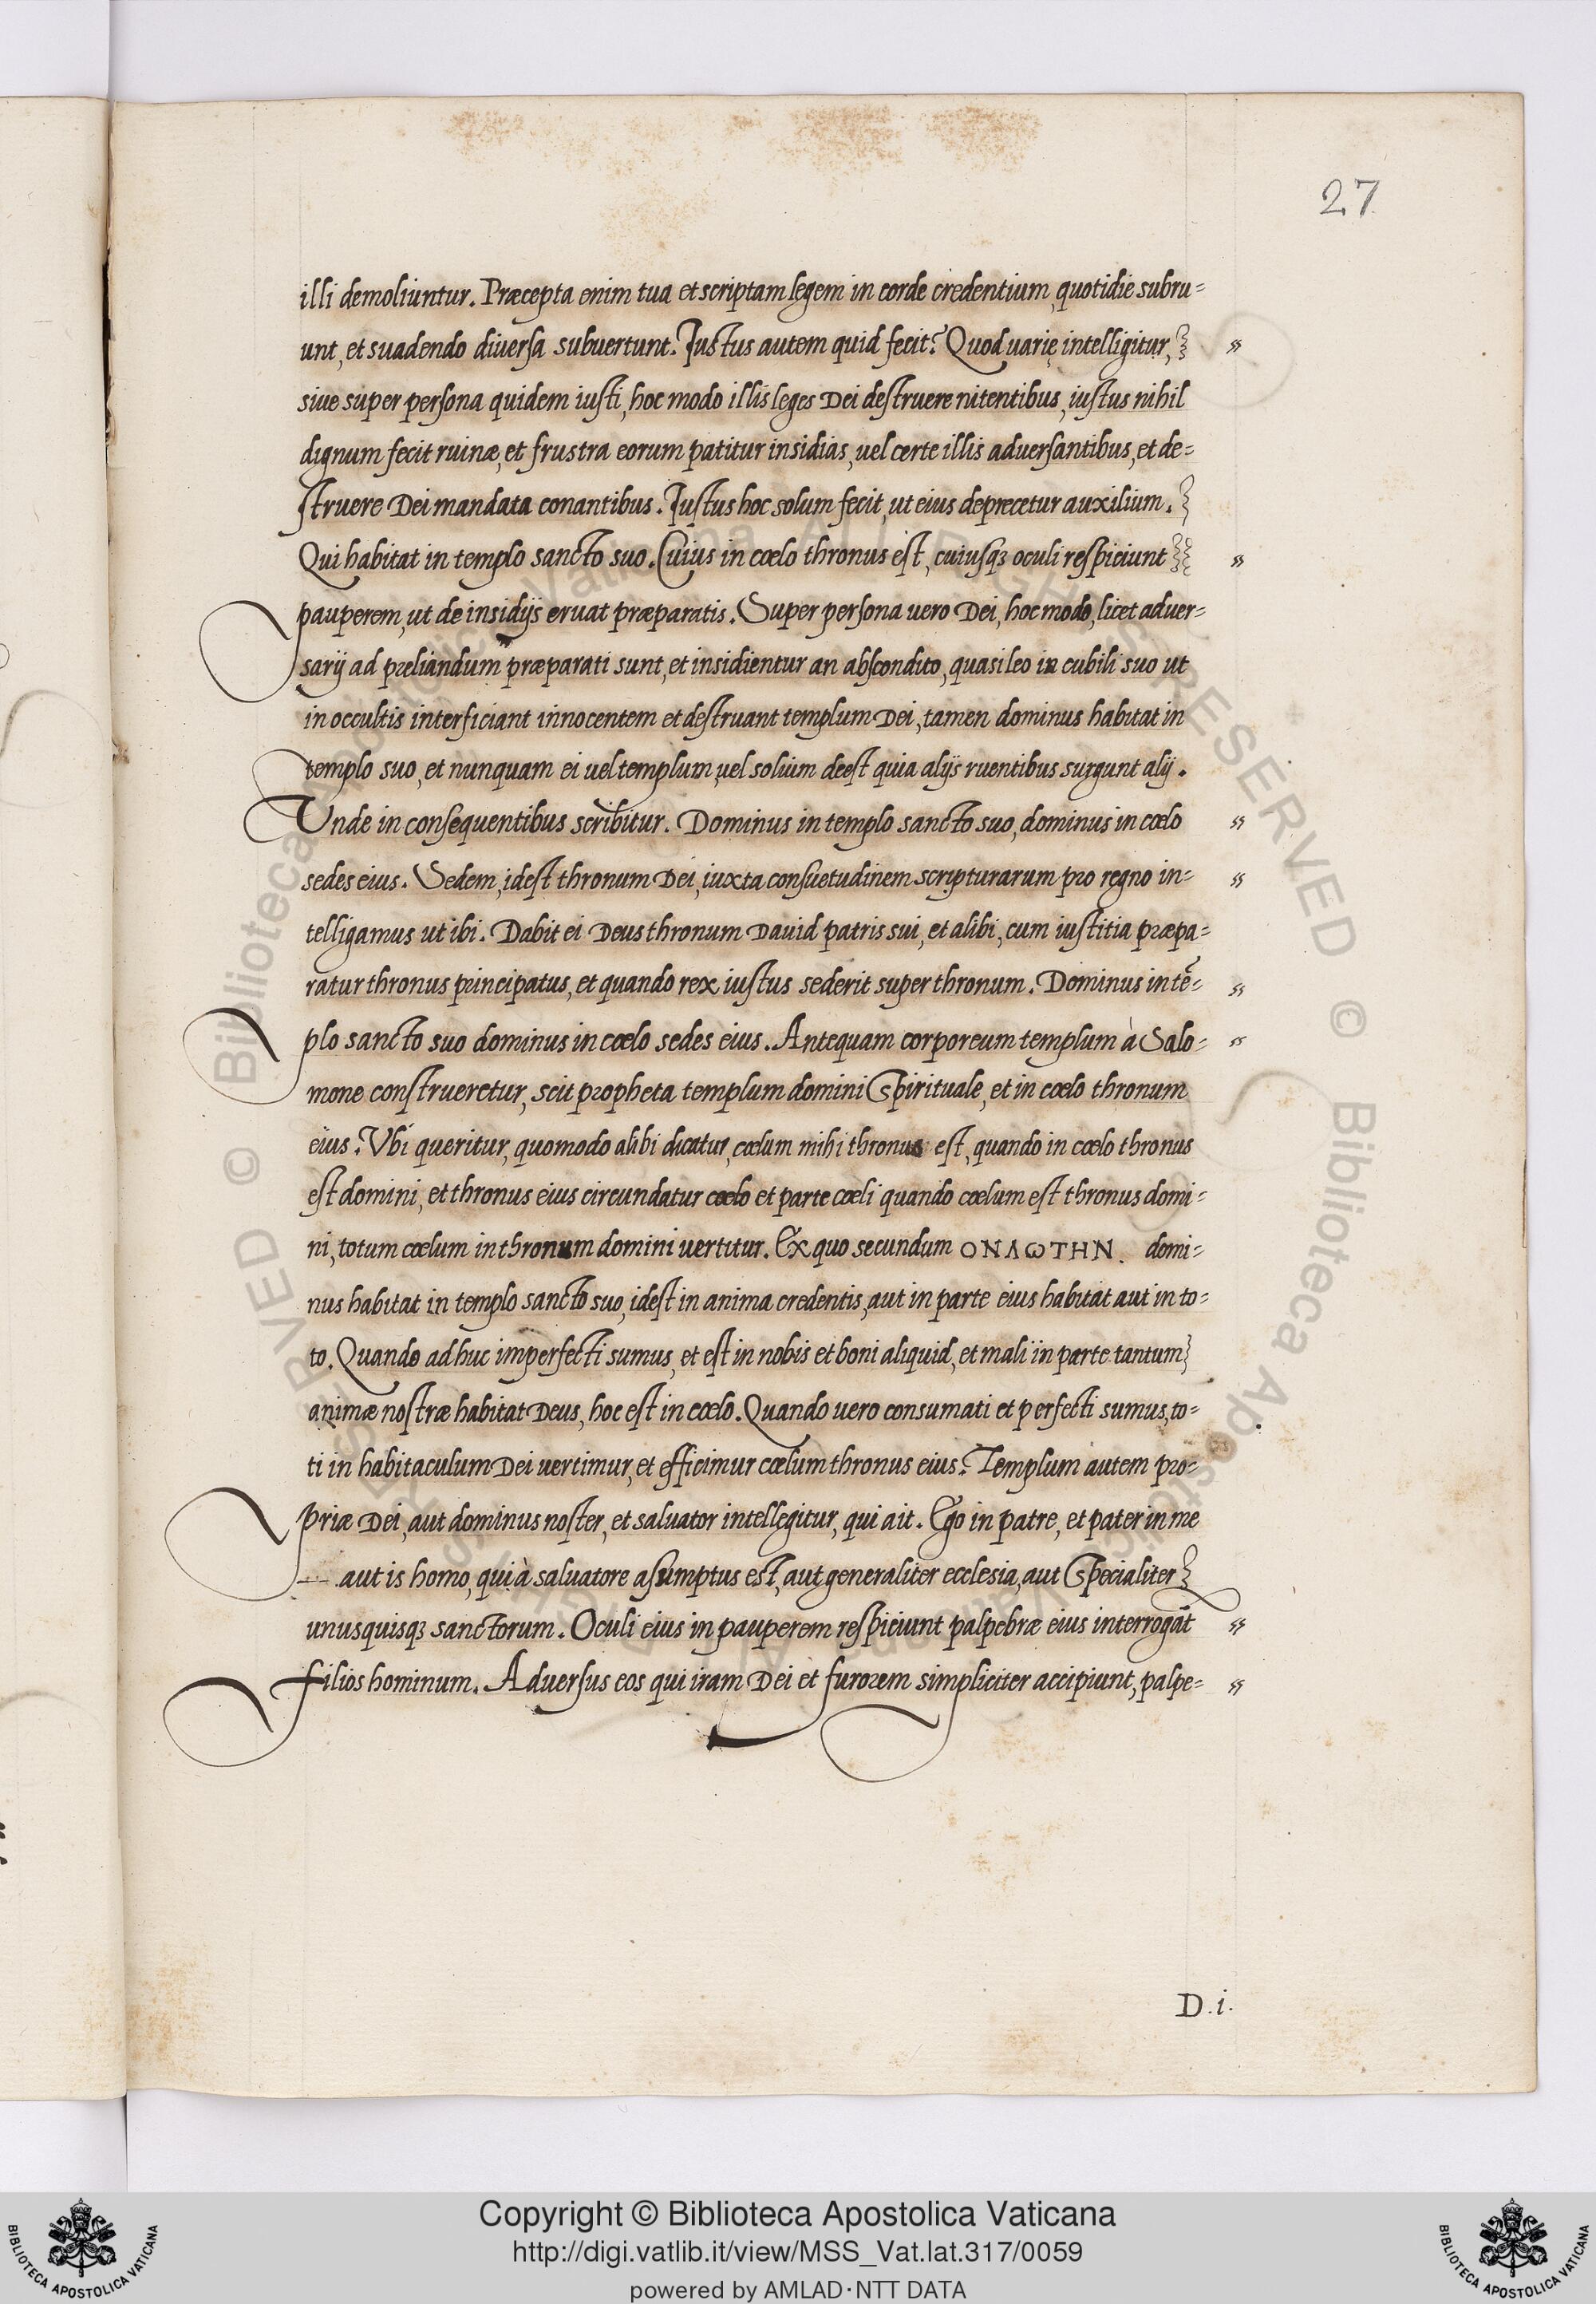 27
illi demoliuntur. Præcepta enim tua et scriptam legem in corde credentium, quotidie subru=
unt, et suadendo diversa subvertunt. Justus autem quid fecit? Quod uarię intelligitur,
siue super persona quidem iusti, hoc modo illis leges Dei destruere nitentibus, iustus nihil
dignum fecit ruinæ, et frustra eorum patitur insidias, uel certe illis adversantibus, et de=
struere Dei mandata conantibus. Justus hoc solum fecit, ut eius deprecetur auxilium.
Qui habitat in templo sancto suo. Cuius in cœlo thronus est, cuiusqꝫ oculi respiciunt
pauperem, ut de insidijs eruat præparatis. Super persona uero Dei, hoc modo, licet adver=
sarij ad prœliandum præparati sunt, et insidientur an abscondito, quasi leo in cubili suo ut
in occultis interficiant innocentem et destruant templum Dei, tamen dominus habitat in
templo suo, et nunquam ei uel templum, uel solium deest quia alijs ruentibus surgunt alij.
Unde in consequentibus scribitur. Dominus in templo sancto suo, dominus in cœlo
sedes eius. Sedem, idest thronum Dei, iuxta consuetudinem scripturarum pro regno in=
telligamus ut ibi. Dabit ei Deus thronum David patris sui, et alibi, cum iustitia præpa=
ratur thronus principatus, et quando rex iustus sederit super thronum. Dominus in tē=
plo sancto suo dominus in cœlo sedes eius. Antequam corporeum templum à Salo=
mone construeretur, scit propheta templum domini Spirituale, et in cœlo thronum
eius. Vbi queritur, quomodo alibi dicatur, cœlum mihi thronus est, quando in cœlo thronus
est domini, et thronus eius circundatur cœlo et parte cœli quando cœlum est thronus domi=
ni, totum cœlum in thronum domini vertitur. Ex quo secundum ΟΝΛΩΤΗΝ. domi=
nus habitat in templo sancto suo, idest in anima credentis, aut in parte eius habitat aut in to=
to. Quando adhuc imperfecti sumus, et est in nobis et boni aliquid, et mali in parte tantum
animæ nostræ habitat Deus, hoc est in cœlo. Quando uero consumati et perfecti sumus, to=
ti in habitaculum Dei vertimur, et efficimur cœlum thronus eius. Templum autem pro=
priæ Dei, aut dominus noster, et saluator intellegitur, qui ait. Ego in patre, et pater in me
aut is homo, qui à saluatore asumptus est, aut generaliter ecclesia, aut Specialiter
unusquisqꝫ sanctorum. Oculi eius in pauperem respiciunt palpebræ eius interrogāt
filios hominum. Adversus eos qui iram Dei et furorem simpliciter accipiunt, palpe=
D.i.
Copyright © Biblioteca Apostolica Vaticana
http://digi.vatlib.it/view/MSS_Vat.lat.317/0059
powered by AMLAD·NTT DATA